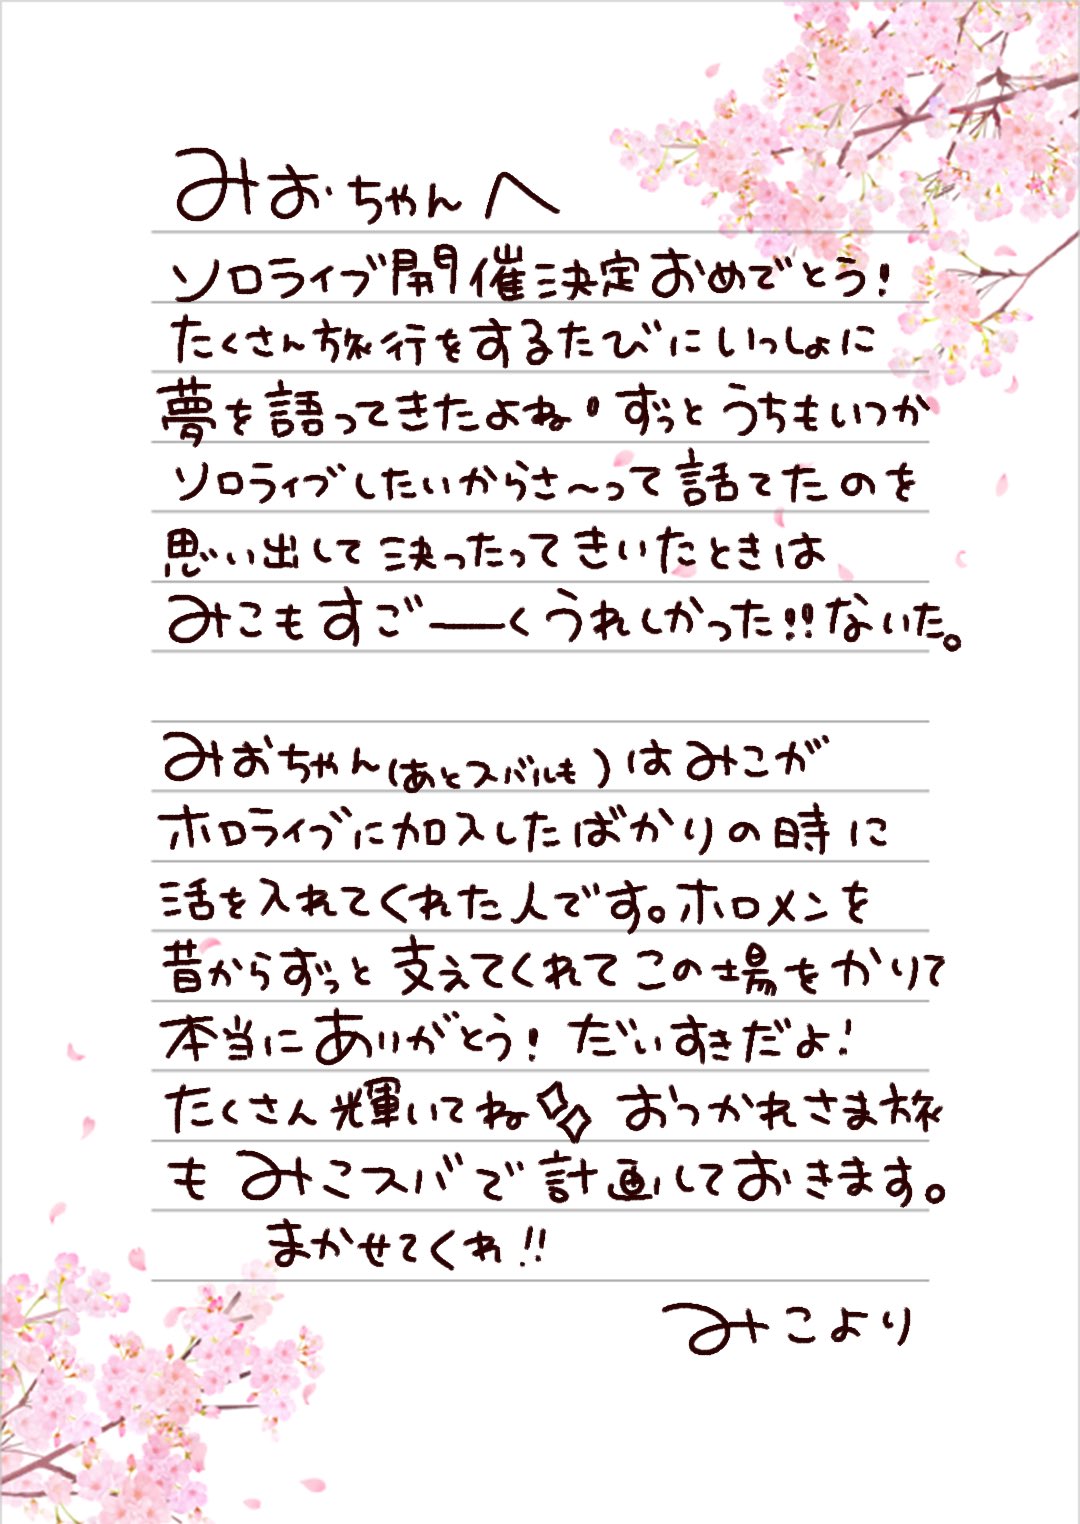 みおちゃんへ
ソロライブ開催決定おめでとう！
たくさん旅行をするたびにいっしょに
夢を語ってきたよね。ずっとうちもいつか
ソロライブしたいからさ〜って話てたのを
思い出して決ったってきいたときは
みこもすごーーくうれしかった!!ないた。
みおちゃん(あとスバルも)はみこが
ホロライブに加入したばかりの時に
活を入れてくれた人です。ホロメンを
昔からずっと支えてくれてこの場をかりて
本当にありがとう！だいすきだよ！
たくさん輝いてね✧✧ おつかれさま旅
もみこスバで計画しておきます。
まかせてくれ!!
みこより